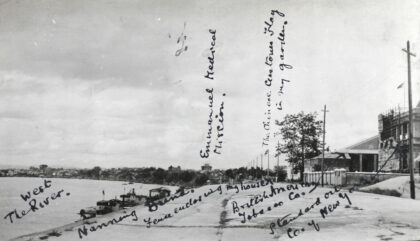 Emmanuel Medical
Mission.
The Chinese Customs Flag
in my garden
West
The River.
Nanning Bund
Fence enclosing my house
British American
Tobacco Co.
Standard Oil
Co. of New Y